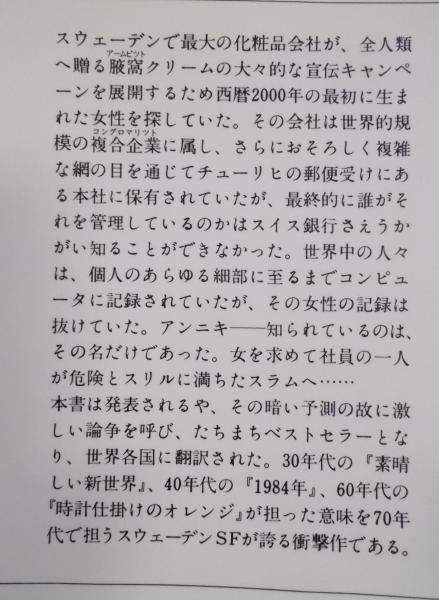 スウェーデンで最大の化粧品会社が、全人類
アームピット
へ贈る腋窩クリームの大々的な宣伝キャンペ
ーンを展開するため西暦2000年の最初に生ま
れた女性を探していた。その会社は世界的規
コングロマリット
模の複合企業に属し、さらにおそろしく複雑
な網の目を通じてチューリヒの郵便受けにあ
る本社に保有されていたが、最終的に誰がそ
れを管理しているのかはスイス銀行さえうか
がい知ることができなかった。世界中の人々
は、個人のあらゆる細部に至るまでコンピュ
ータに記録されていたが、その女性の記録は
抜けていた。アンニキ――知られているのは、
その名だけであった。女を求めて社員の一人
が危険とスリルに満ちたスラムへ……
本書は発表されるや、その暗い予測の故に激
しい論争を呼び、たちまちベストセラーとな
り、世界各国に翻訳された。30年代の『素晴
しい新世界』、40年代の『1984年』、60年代の
『時計仕掛けのオレンジ』が担った意味を70年
代で担うスウェーデンSFが誇る衝撃作である。